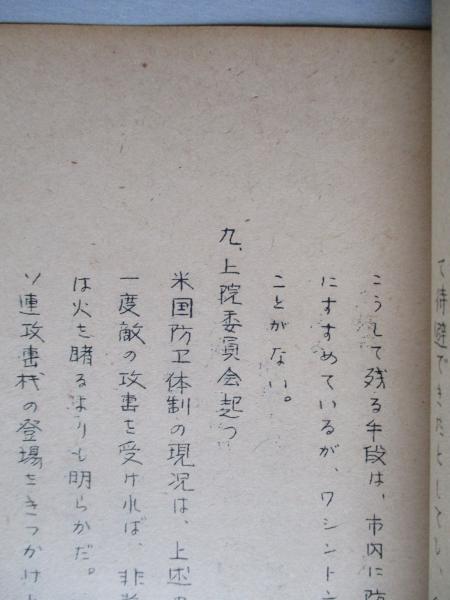 て待避できたとしても、
こうして残る手段は、市内に防
にすすめているが、ワシントン
ことがない。
九、上院委員会起つ
米国防卫体制の現況は、上述の
一度敵の攻撃を受ければ、非常
は火を睹るよりも明らかだ。
ソ連攻撃机の登場をきっかけ